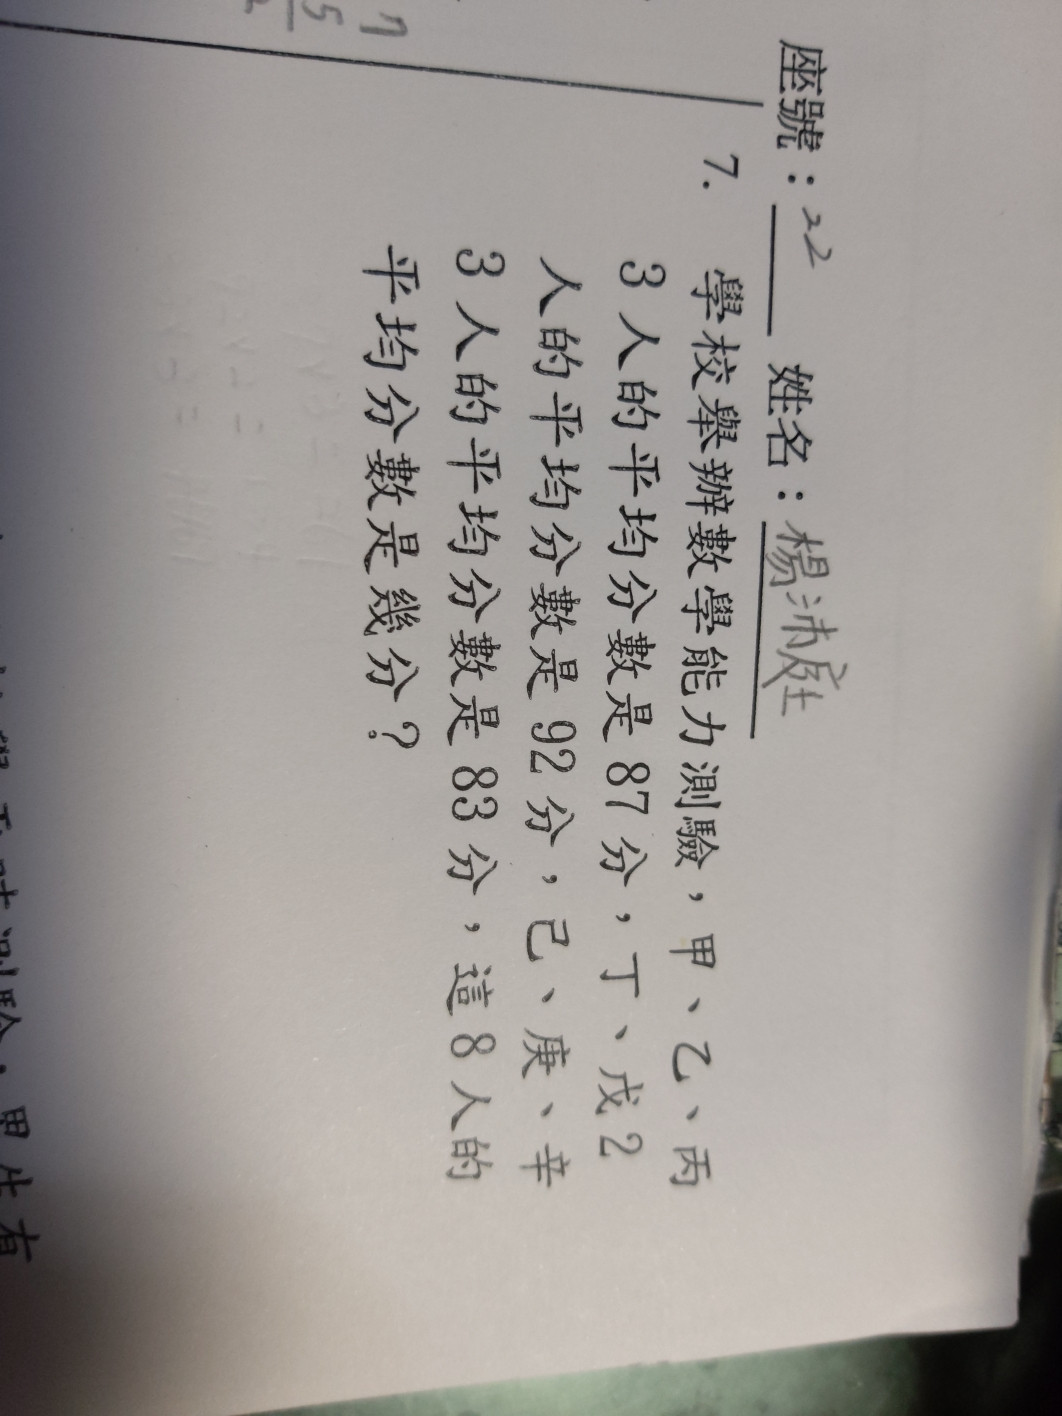 座號：22 姓名：楊沛庭
7. 學校舉辦數學能力測驗，甲、乙、丙
3人的平均分數是87分，丁、戊2
人的平均分數是92分，己、庚、辛
3人的平均分數是83分，這8人的
平均分數是幾分？